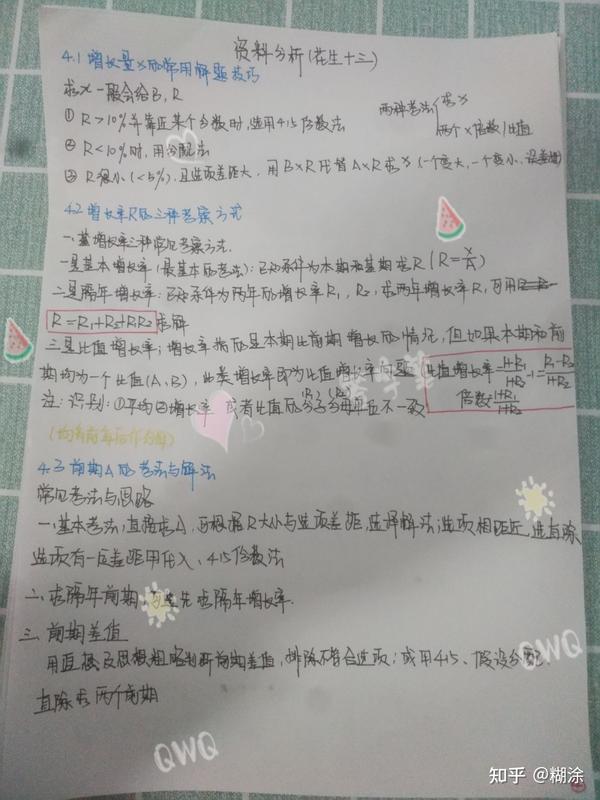 资料分析(花生十三)
4.1 增长量X的常用解题技巧
求X一般会给B,R
两种考法 求X
两个X倍数/比值
① R>10%并靠近某个分数时,选用415份数法
② R<10%时,用分配法
③ R很小(<5%),且选项差距大,用B×R代替A×R求X(一个变大,一个变小,误差增)
4.2 增长率R的三种考察方式
一、基增长率三种常见考察方式.
一是基本增长率(最基本的考法):已知条件为本期和基期求R(R=X/A)
二是隔年增长率:已知条件为两年的增长率R1,R2,求两年增长率R,可用
R=R1+R2+R1R2求解
三是比值增长率:增长率指的是本期比前期增长的情况,但如果本期和前
期均为一个比值(A、B),此类增长率即为比值增长率问题(比值增长率=1+R1/1+R2-1=R1-R2/1+R2
倍数:1+R1/1+R2
注:识别:①平均②增长率 或者比值的分子(R1)分母(R2)单位不一致
4.3 前期A的考法与解法
常见考法与思路
一、基本考法,直接求A,可根据R大小与选项差距,选择解法;选项相距近,选直除
选项有一定差距用代入、415份数法
二、求隔年前期,可先求隔年增长率.
三、前期差值
用直接及思想粗略判断前期差值,排除不符合选项;或用415、假设分配、
直除求两个前期
QWQ
QWQ
QWQ
知乎 @糊涂